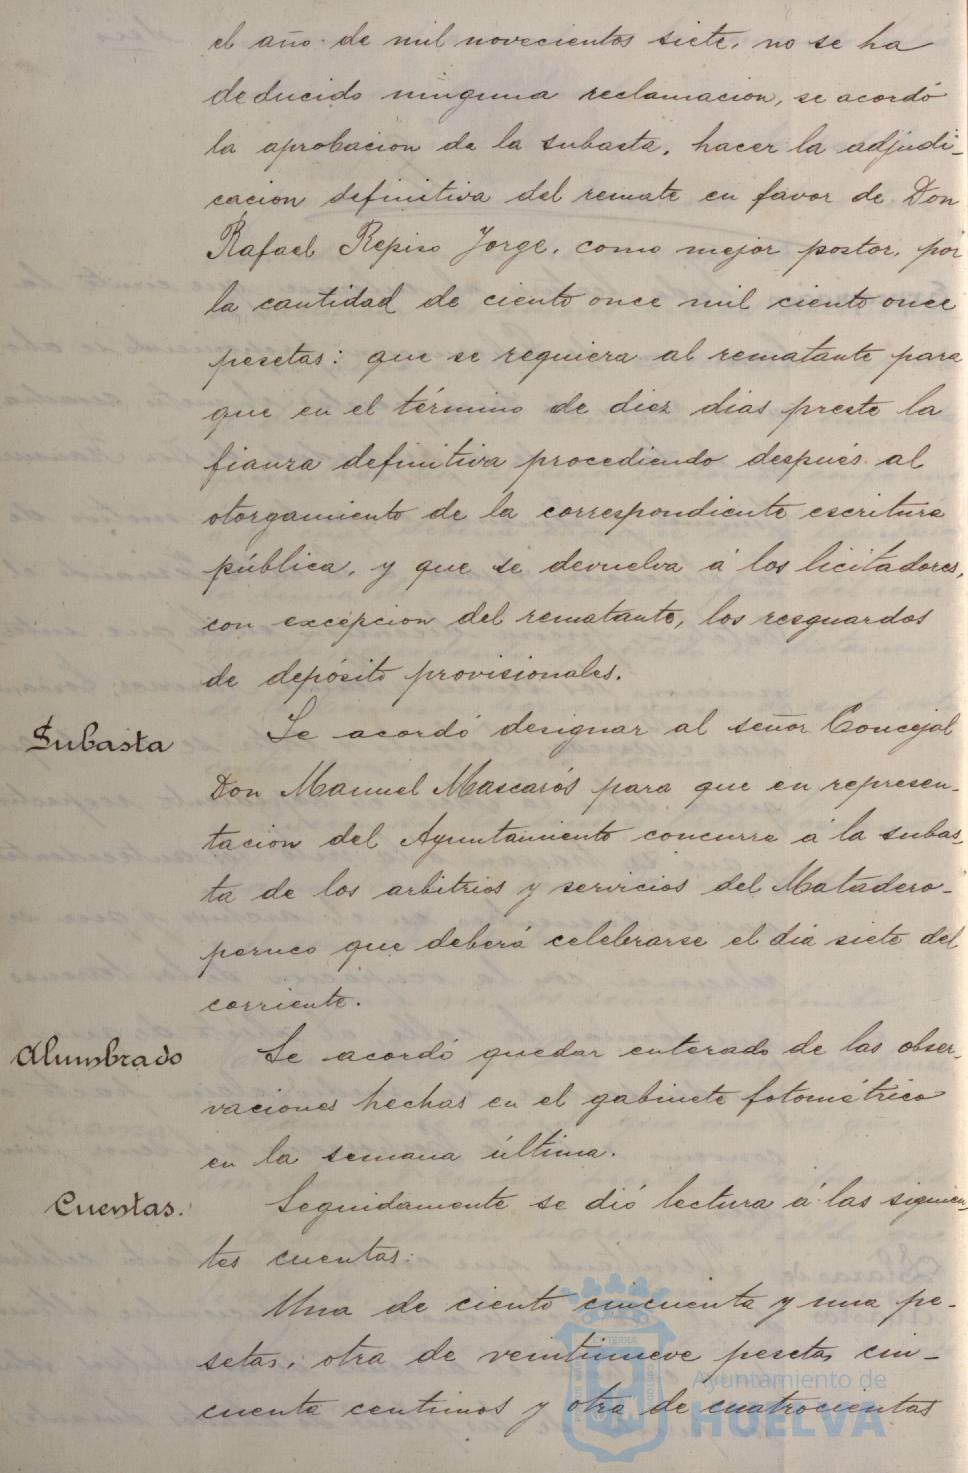 el año de mil novecientos siete, no se ha
deducido ninguna reclamacion, se acordó
la aprobacion de la subasta, hacer la adjudi-
cacion definitiva del remate en favor de Don
Rafael Repiso Jorge, como mejor postor, por
la cantidad de ciento once mil ciento once
pesetas: que se requiera al rematante para
que en el término de diez dias preste la
fianza definitiva procediendo después al
otorgamiento de la correspondiente escritura
pública, y que se devuelva á los licitadores,
con excepcion del rematante, los resguardos
de depósito provisionales.
Subasta Se acordó designar al señor Concejal
Don Manuel Mascarós para que en represen-
tacion del Ayuntamiento concurra á la subas-
ta de los arbitrios y servicios del Matadero-
poruco que deberá celebrarse el dia siete del
corriente.
Alumbrado Se acordó quedar enterado de las obser-
vaciones hechas en el gabinete fotométrico
en la semana última.
Cuentas. Seguidamente se dió lectura á las siguien-
tes cuentas:
Una de ciento cincuenta y una pe-
setas, otra de veintinueve pesetas cin-
cuenta centimos y otra de cuatrocientas
Ayuntamiento de
HUELVA